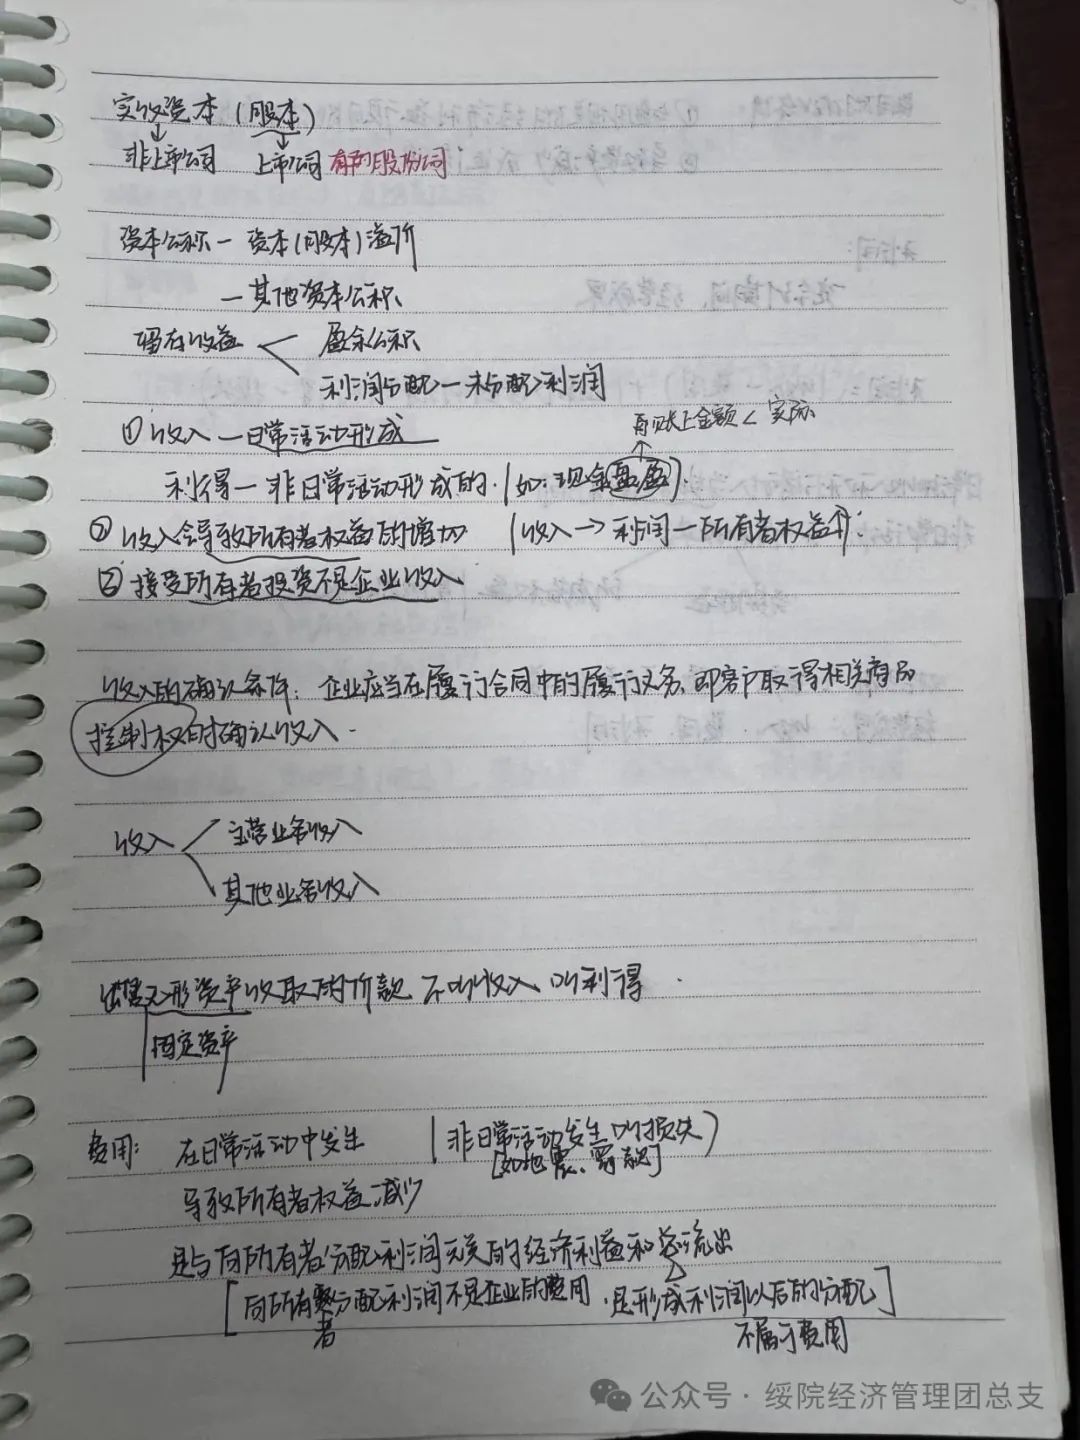 实收资本（股本）
非上市公司 上市公司 有的股份公司
资本公积－资本（股本）溢价
－其他资本公积
留存收益 盈余公积
利润分配－未分配利润
①收入－日常活动形成
账上金额＜实际
利得－非日常活动形成的.（如:现金盘盈）.
②收入会导致所有者权益的增加（收入→利润－所有者权益↑.
③接受所有者投资不是企业收入
收入的确认条件：企业应当在履行合同中的履行义务,即客户取得相关商品
控制权时确认收入.
收入 主营业务收入
其他业务收入
出售无形资产收取的价款 不叫收入 叫利得.
固定资产
费用: 在日常活动中发生（非日常活动发生叫损失）
[如地震、罚款]
导致所有者权益减少
是与向所有者分配利润无关的经济利益和总流出
[向所有者分配利润不是企业的费用.是形成利润以后的分配]
不属于费用
公众号·绥院经济管理团总支